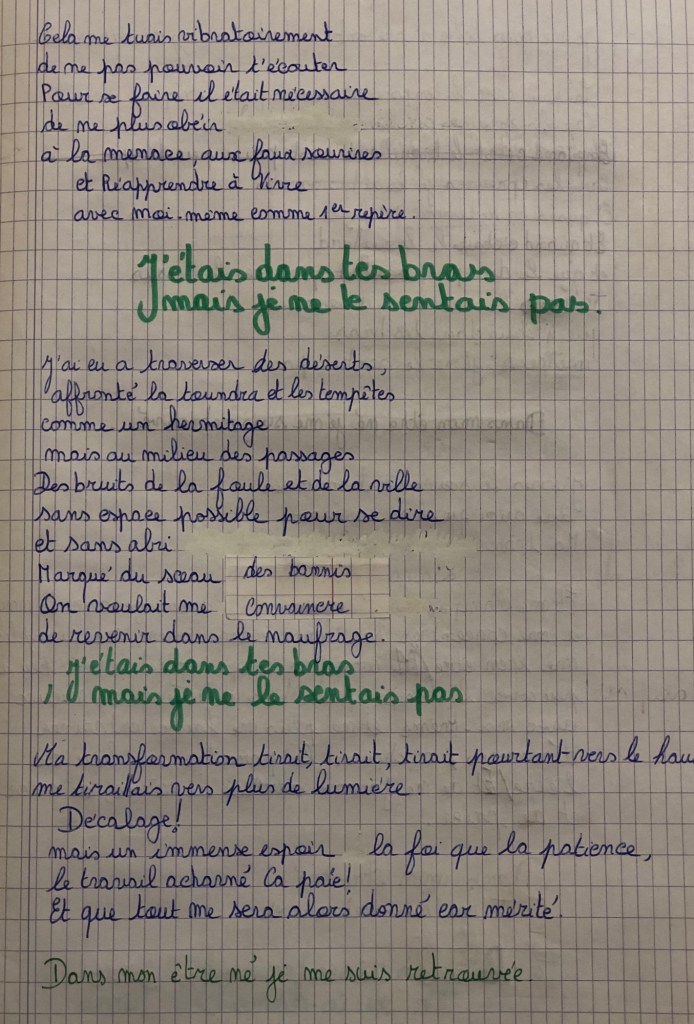 Cela me tuais vibratoirement
de ne pas pouvoir t'écouter
Pour se faire il était nécessaire
de ne plus obéir
à la menace, aux faux sourires
et Réapprendre à Vivre
avec moi-même comme 1er repère.
J'étais dans tes bras
mais je ne le sentais pas.
J'ai eu a traverser des déserts,
affronté la toundra et les tempêtes
comme un hermitage
mais au milieu des passages
Des bruits de la foule et de la ville
sans espace possible pour se dire
et sans abri
Marqué du sceau des bannis
On voulait me convaincre
de revenir dans le naufrage.
J'étais dans tes bras
mais je ne le sentais pas
Ma transformation tirait, tirait, tirait pourtant vers le hau
me tiraillais vers plus de lumière.
Décalage!
mais un immense espoir la foi que la patience,
le travail acharné Ca paie!
Et que tout me sera alors donné car mérité.
Dans mon être né je me suis retrouvée.